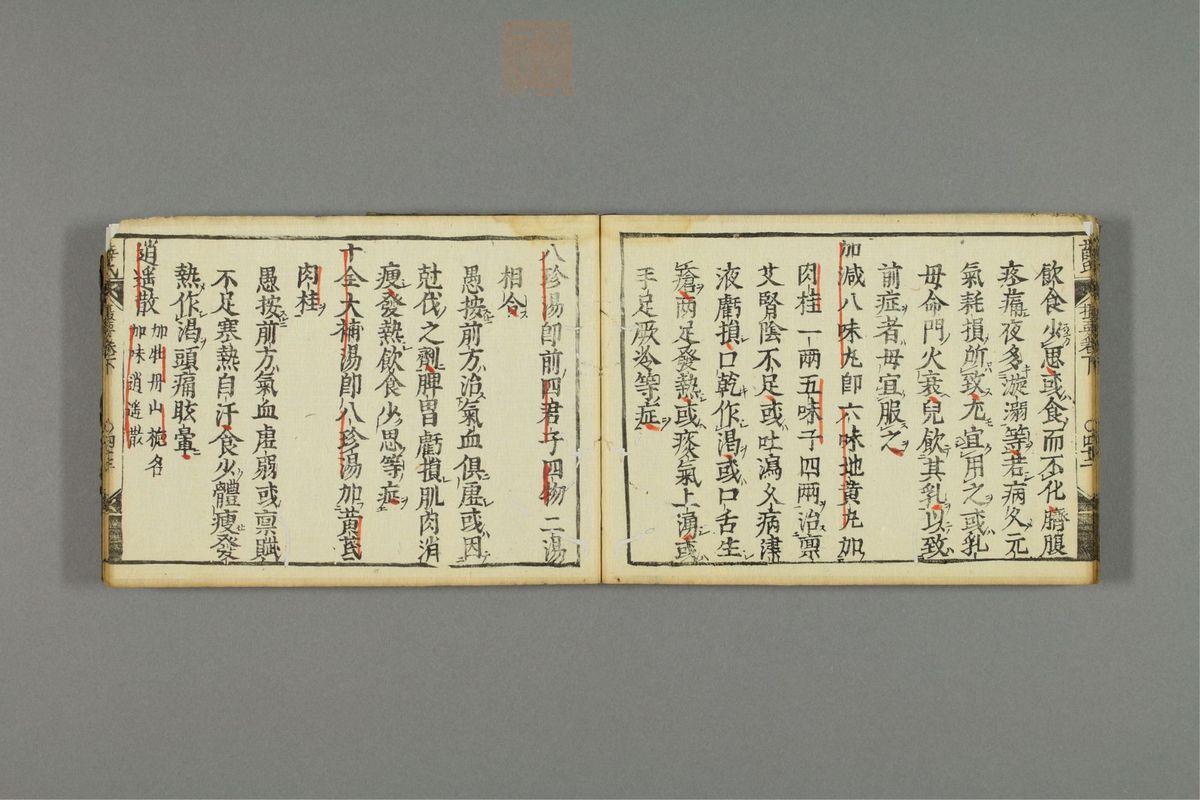 飲食少思或食而不化臍腹
疼痛夜多漩溺等若病久元
氣耗損所致尤宜用之或乳
母命門火衰兒飲其乳以致
前症者母宜服之
加減八味丸即六味地黄丸加
肉桂一兩五味子四兩治禀
父腎陰不足或吐瀉久病津
液虧損口乾作渇或口舌生
瘡两足發熱或痰氣上湧或
手足厥冷等症
八珍湯即前四君子四物二湯
相合
愚按前方治氣血俱虚或因
尅伐之劑脾胃虧損肌肉消
瘦發熱飲食少思等症
十全大補湯即八珍湯加黄芪
肉桂
愚按前方氣血虚弱或禀賦
不足寒熱自汗食少體瘦發
熱作渇頭痛眩暈
逍遥散
加牡丹山梔名
加味逍遥散